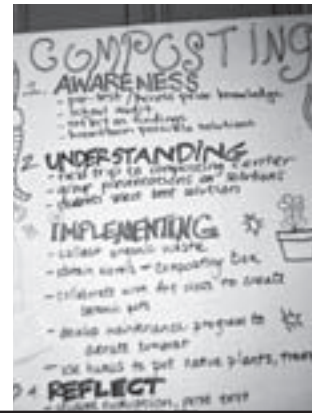 COMPOSTING
1. AWARENESS
- pre-test / access prior knowledge
- school audit
- reflect on findings
- brainstorm possible solutions
2 UNDERSTANDING
- field trip to composting center
- group presentations on solutions
- students select best solution
IMPLEMENTING
- collect organic waste
- obtain worms + composting box
- collaborate with Art class to create
ceramic pots
- devise maintenance program to
aerate compost
- use humus to pot native plants,
4 REFLECT
evaluation, post test